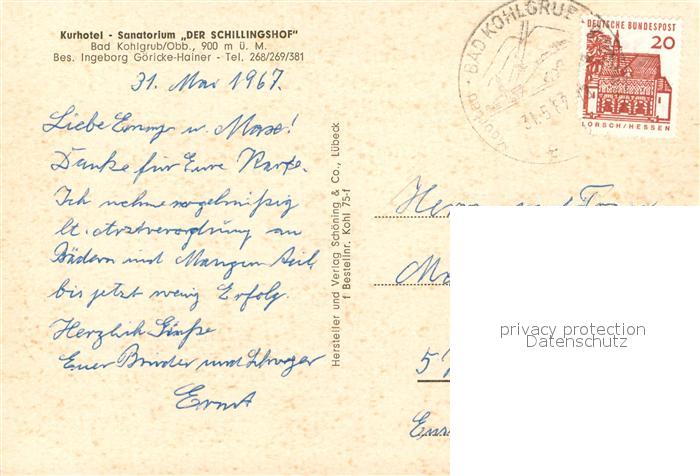 Kurhotel - Sanatorium „DER SCHILLINGSHOF"
Bad Kohlgrub/Obb., 900 m ü. M.
Bes. Ingeborg Göricke-Hainer - Tel. 268/269/381
31. Mai 1967.
Liebe Emmy u. Max!
Danke für Eure Karte.
Ich nehme regelmäßig
lt. Arztverordnung an
Bädern und Massagen teil,
bis jetzt wenig Erfolg.
Herzlich Grüße
Euer Bruder und Schwager
Ernst
Hersteller und Verlag Schöning & Co., Lübeck
f Bestellnr. Kohl 75-f
BAD KOHLGRUB
31.5.67
DEUTSCHE BUNDESPOST
20
LORSCH/HESSEN
Herrn und Frau
Ma
5
privacy protection
Datenschutz